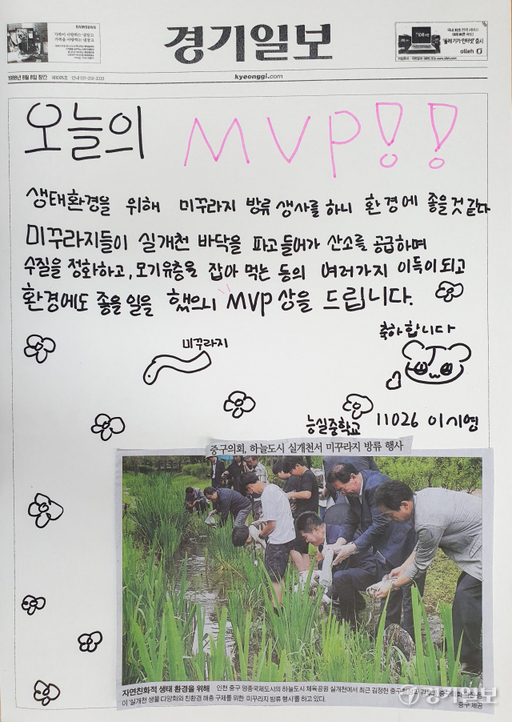 경기일보
kyeonggi.com
olleh
오늘의 MVP!!
생태환경을 위해 미꾸라지 방류 생사를 하니 환경에 좋을것 같다
미꾸라지들이 실개천 바닥을 파고들어가 산소를 공급하며
수질을 정화하고, 모기유충을 잡아 먹는 등의 여러가지 이득이 되고
환경에도 좋을 일을 했으니 MVP 상을 드립니다.
축하합니다
미꾸라지
능실중학교 11026 이시영
중구의회, 하늘도시 실개천서 미꾸라지 방류 행사
자연친화적 생태 환경을 위해 인천 중구 영종국제도시의 하늘도시 체육공원 실개천에서 최근 김정헌 중구
이 '실개천 생물 다양화와 친환경 해충 구제를 위한 미꾸라지 방류 행사'를 하고 있다.
중구 제공
경기일보